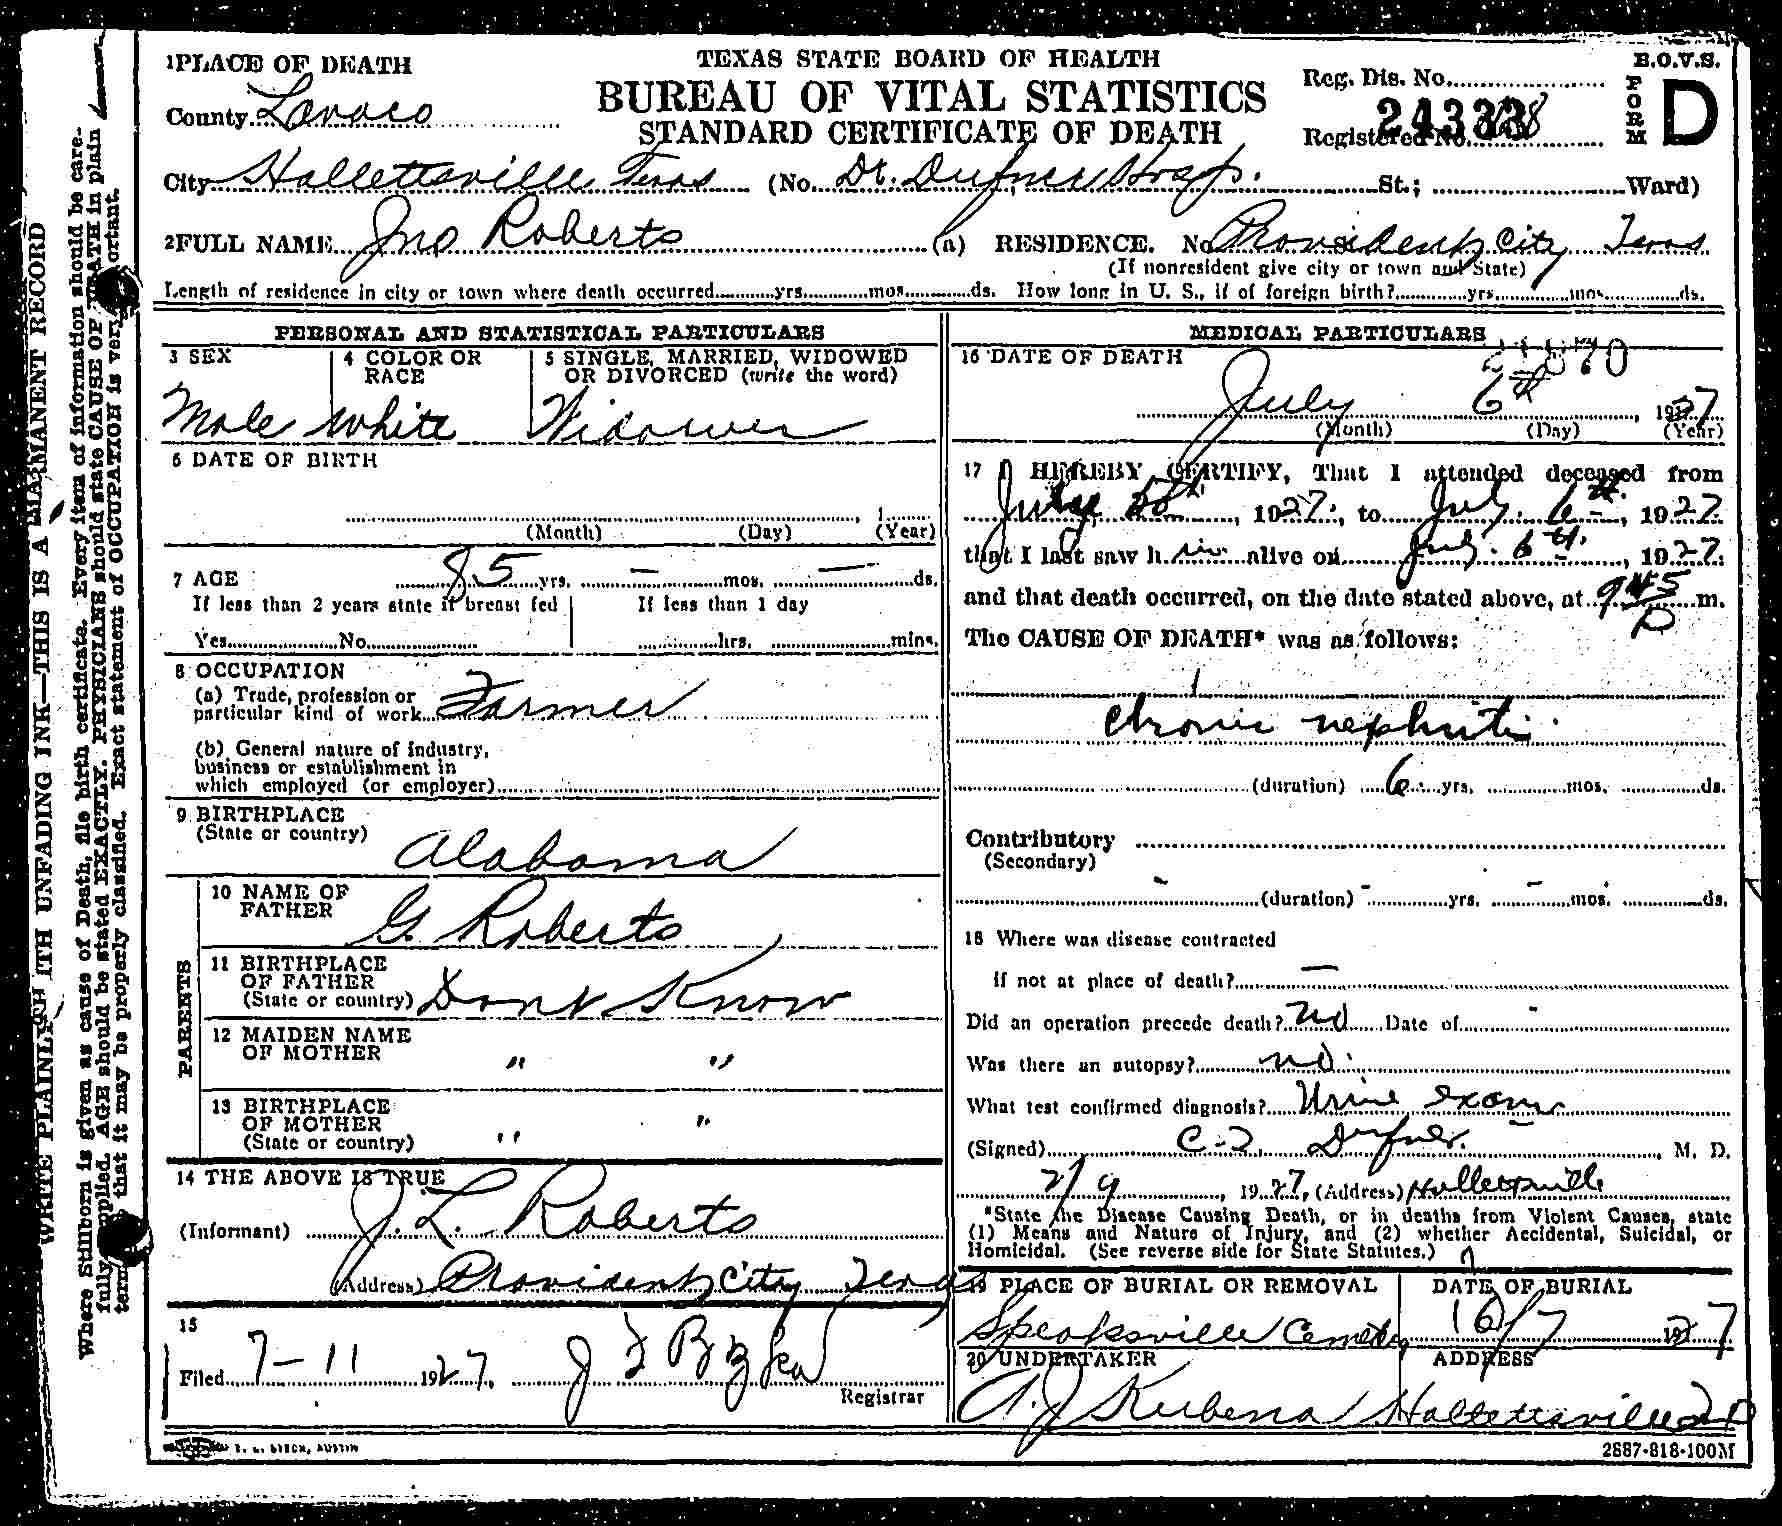 1 PLACE OF DEATH
TEXAS STATE BOARD OF HEALTH
BUREAU OF VITAL STATISTICS
STANDARD CERTIFICATE OF DEATH
B.O.V.S.
FORM D
Reg. Dis. No.
24333
Registered No.
County Lavaca
City Hallettsville Texas (No. Dr. Dufner Hosp. St.; Ward)
2 FULL NAME Jno Roberts (a) RESIDENCE. No. Providence City Texas
(If nonresident give city or town and State)
Length of residence in city or town where death occurred yrs. mos. ds. How long in U. S., if of foreign birth? yrs. mos. ds.
PERSONAL AND STATISTICAL PARTICULARS
3 SEX
Male
4 COLOR OR RACE
White
5 SINGLE, MARRIED, WIDOWED
OR DIVORCED (write the word)
Widower
6 DATE OF BIRTH
, 1
(Month) (Day) (Year)
7 AGE 85 yrs. — mos. — ds.
If less than 2 years state if breast fed
Yes No
If less than 1 day
hrs. mins.
8 OCCUPATION
(a) Trade, profession or
particular kind of work Farmer
(b) General nature of industry,
business or establishment in
which employed (or employer)
9 BIRTHPLACE
(State or country) Alabama
PARENTS
10 NAME OF
FATHER G. Roberts
11 BIRTHPLACE
OF FATHER
(State or country) Dont Know
12 MAIDEN NAME
OF MOTHER " "
13 BIRTHPLACE
OF MOTHER
(State or country) " "
14 THE ABOVE IS TRUE
(Informant) J. L. Roberts
(Address) Providence City Texas
15
Filed 7-11 1927,
Registrar
MEDICAL PARTICULARS
16 DATE OF DEATH
July 6th, 1927
(Month) (Day) (Year)
17 I HEREBY CERTIFY, That I attended deceased from
July, 1927, to July 6th, 1927
that I last saw him alive on July 6th, 1927
and that death occurred, on the date stated above, at 9 45 P m.
The CAUSE OF DEATH* was as follows:
Chronic nephritis
(duration) 6 yrs. mos. ds.
Contributory
(Secondary)
(duration) - yrs. - mos. ds.
18 Where was disease contracted
if not at place of death? —
Did an operation precede death? no Date of -
Was there an autopsy? no
What test confirmed diagnosis? Urine exam
(Signed) Dufner, M. D.
1927, (Address) Hallettsville
*State the Disease Causing Death, or in deaths from Violent Causes, state
(1) Means and Nature of Injury, and (2) whether Accidental, Suicidal, or
Homicidal. (See reverse side for State Statutes.)
19 PLACE OF BURIAL OR REMOVAL
Speaksville Cemetery
DATE OF BURIAL
1927
20 UNDERTAKER
A. J. Kubena
ADDRESS
Hallettsville
2887-818-100M
WRITE PLAINLY WITH UNFADING INK—THIS IS A PERMANENT RECORD
Where Stillborn is given as cause of Death, file birth certificate. Every item of information should be care-
fully supplied. AGE should be stated EXACTLY. PHYSICIANS should state CAUSE OF DEATH in plain
terms that it may be properly classified. Exact statement of OCCUPATION is very important.